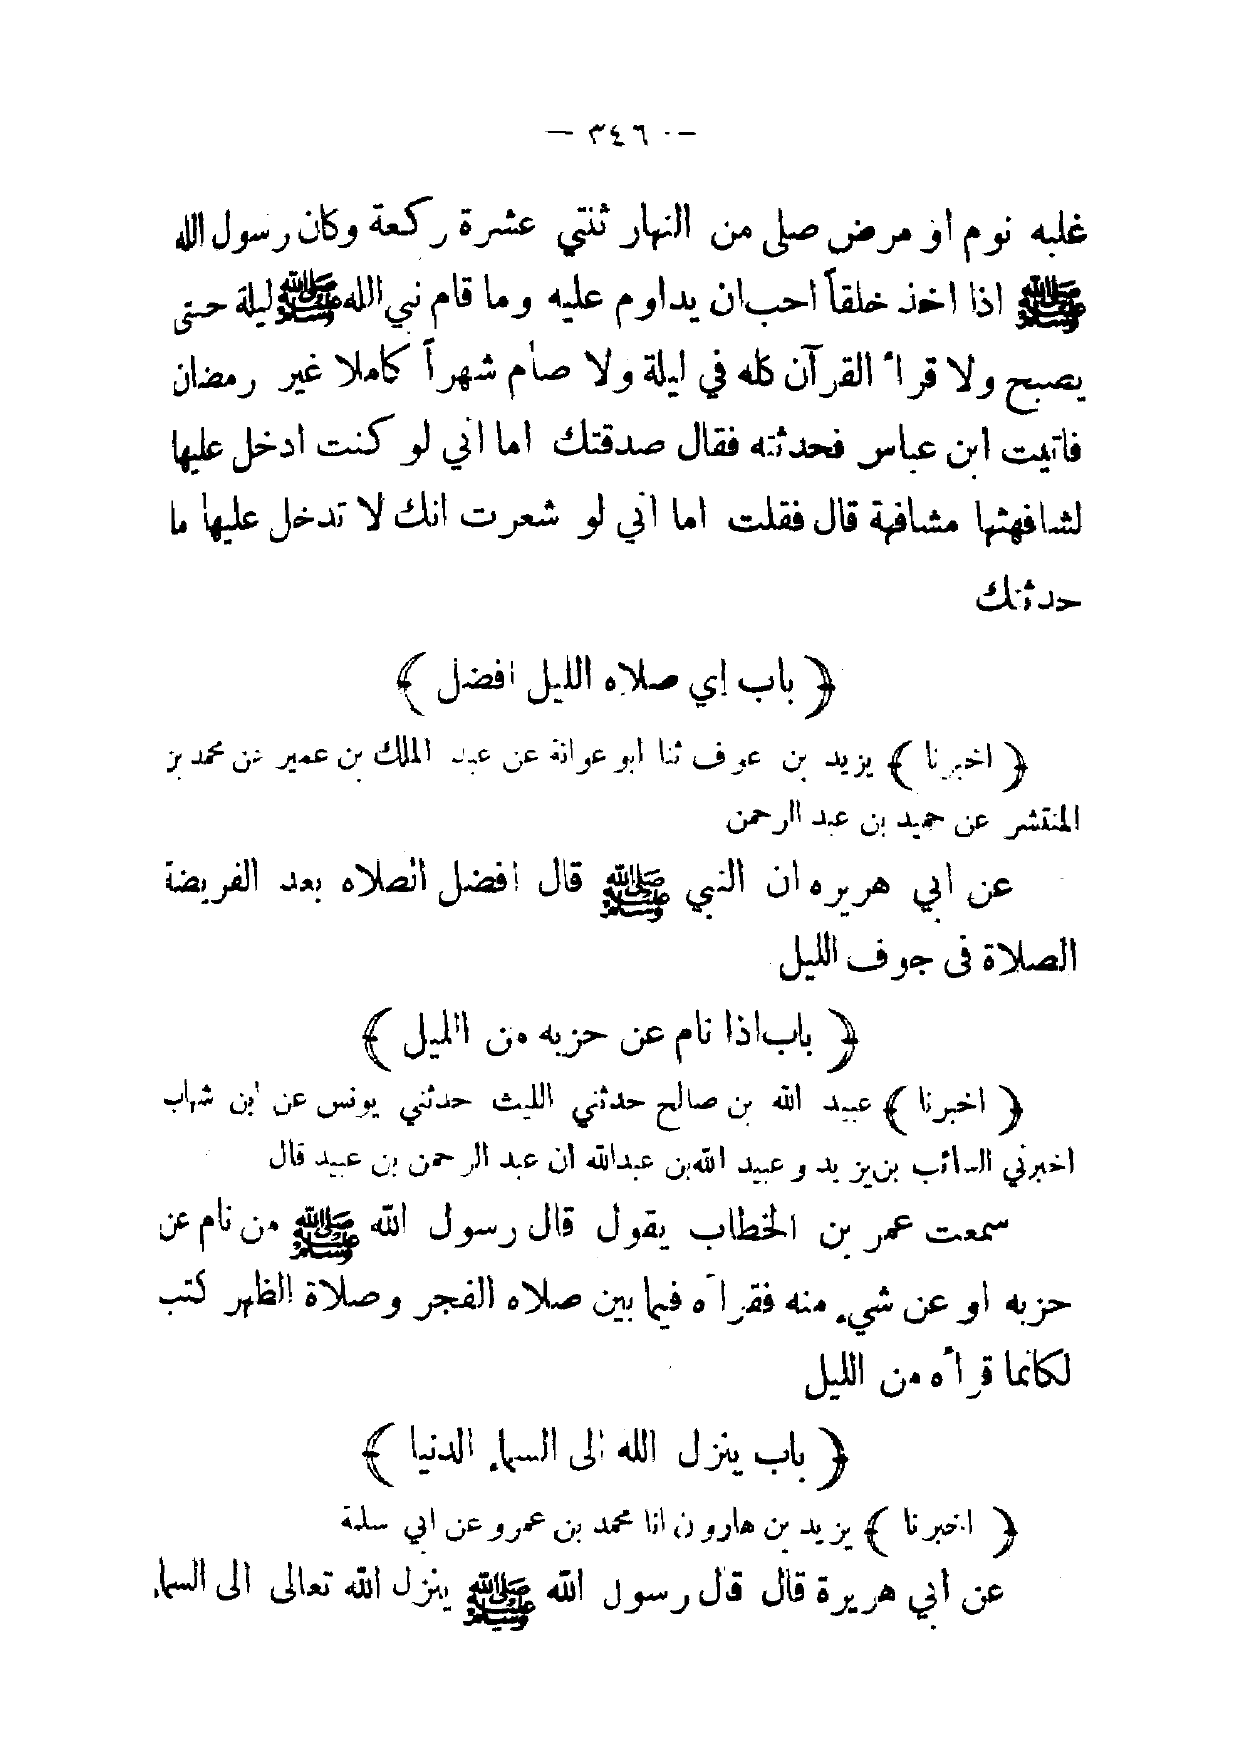 — ٣٤٦ —
غلبه نوم او مرض صلى من النهار ثنتي عشرة ركعة وكان رسول الله
ﷺ اذا اخذ خلقاً احب ان يداوم عليه وما قام نبي الله ﷺ ليلة حتى
يصبح ولا قرأ القرآن كله في ليلة ولا صام شهراً كاملا غير رمضان
فاتيت ابن عباس فحدثته فقال صدقتك اما اني لو كنت ادخل عليها
لشافهتها مشافهة قال فقلت اما اني لو شعرت انك لا تدخل عليها ما
حدثتك
﴿ باب اي صلاه الليل افضل ﴾
﴿ اخبرنا ﴾ يزيد بن عوف ثنا ابو عوانة عن عبد الملك بن عمير عن محمد بن
المنتشر عن حميد بن عبد الرحمن
عن ابي هريره ان النبي ﷺ قال افضل الصلاه بعد الفريضة
الصلاة فى جوف الليل
﴿ باب اذا نام عن حزبه من الليل ﴾
﴿ اخبرنا ﴾ عبيد الله بن صالح حدثني الليث حدثني يونس عن ابن شهاب
اخبرني السائب بن يزيد وعبيد الله بن عبدالله ان عبد الرحمن بن عبيد قال
سمعت عمر بن الخطاب يقول قال رسول الله ﷺ من نام عن
حزبه او عن شيء منه فقرأه فيما بين صلاه الفجر وصلاة الظهر كتب
لكانما قرأه من الليل
﴿ باب ينزل الله الى السماء الدنيا ﴾
﴿ اخبرنا ﴾ يزيد بن هارون انا محمد بن عمرو عن ابي سلمة
عن أبي هريرة قال قال رسول الله ﷺ ينزل الله تعالى الى السماء